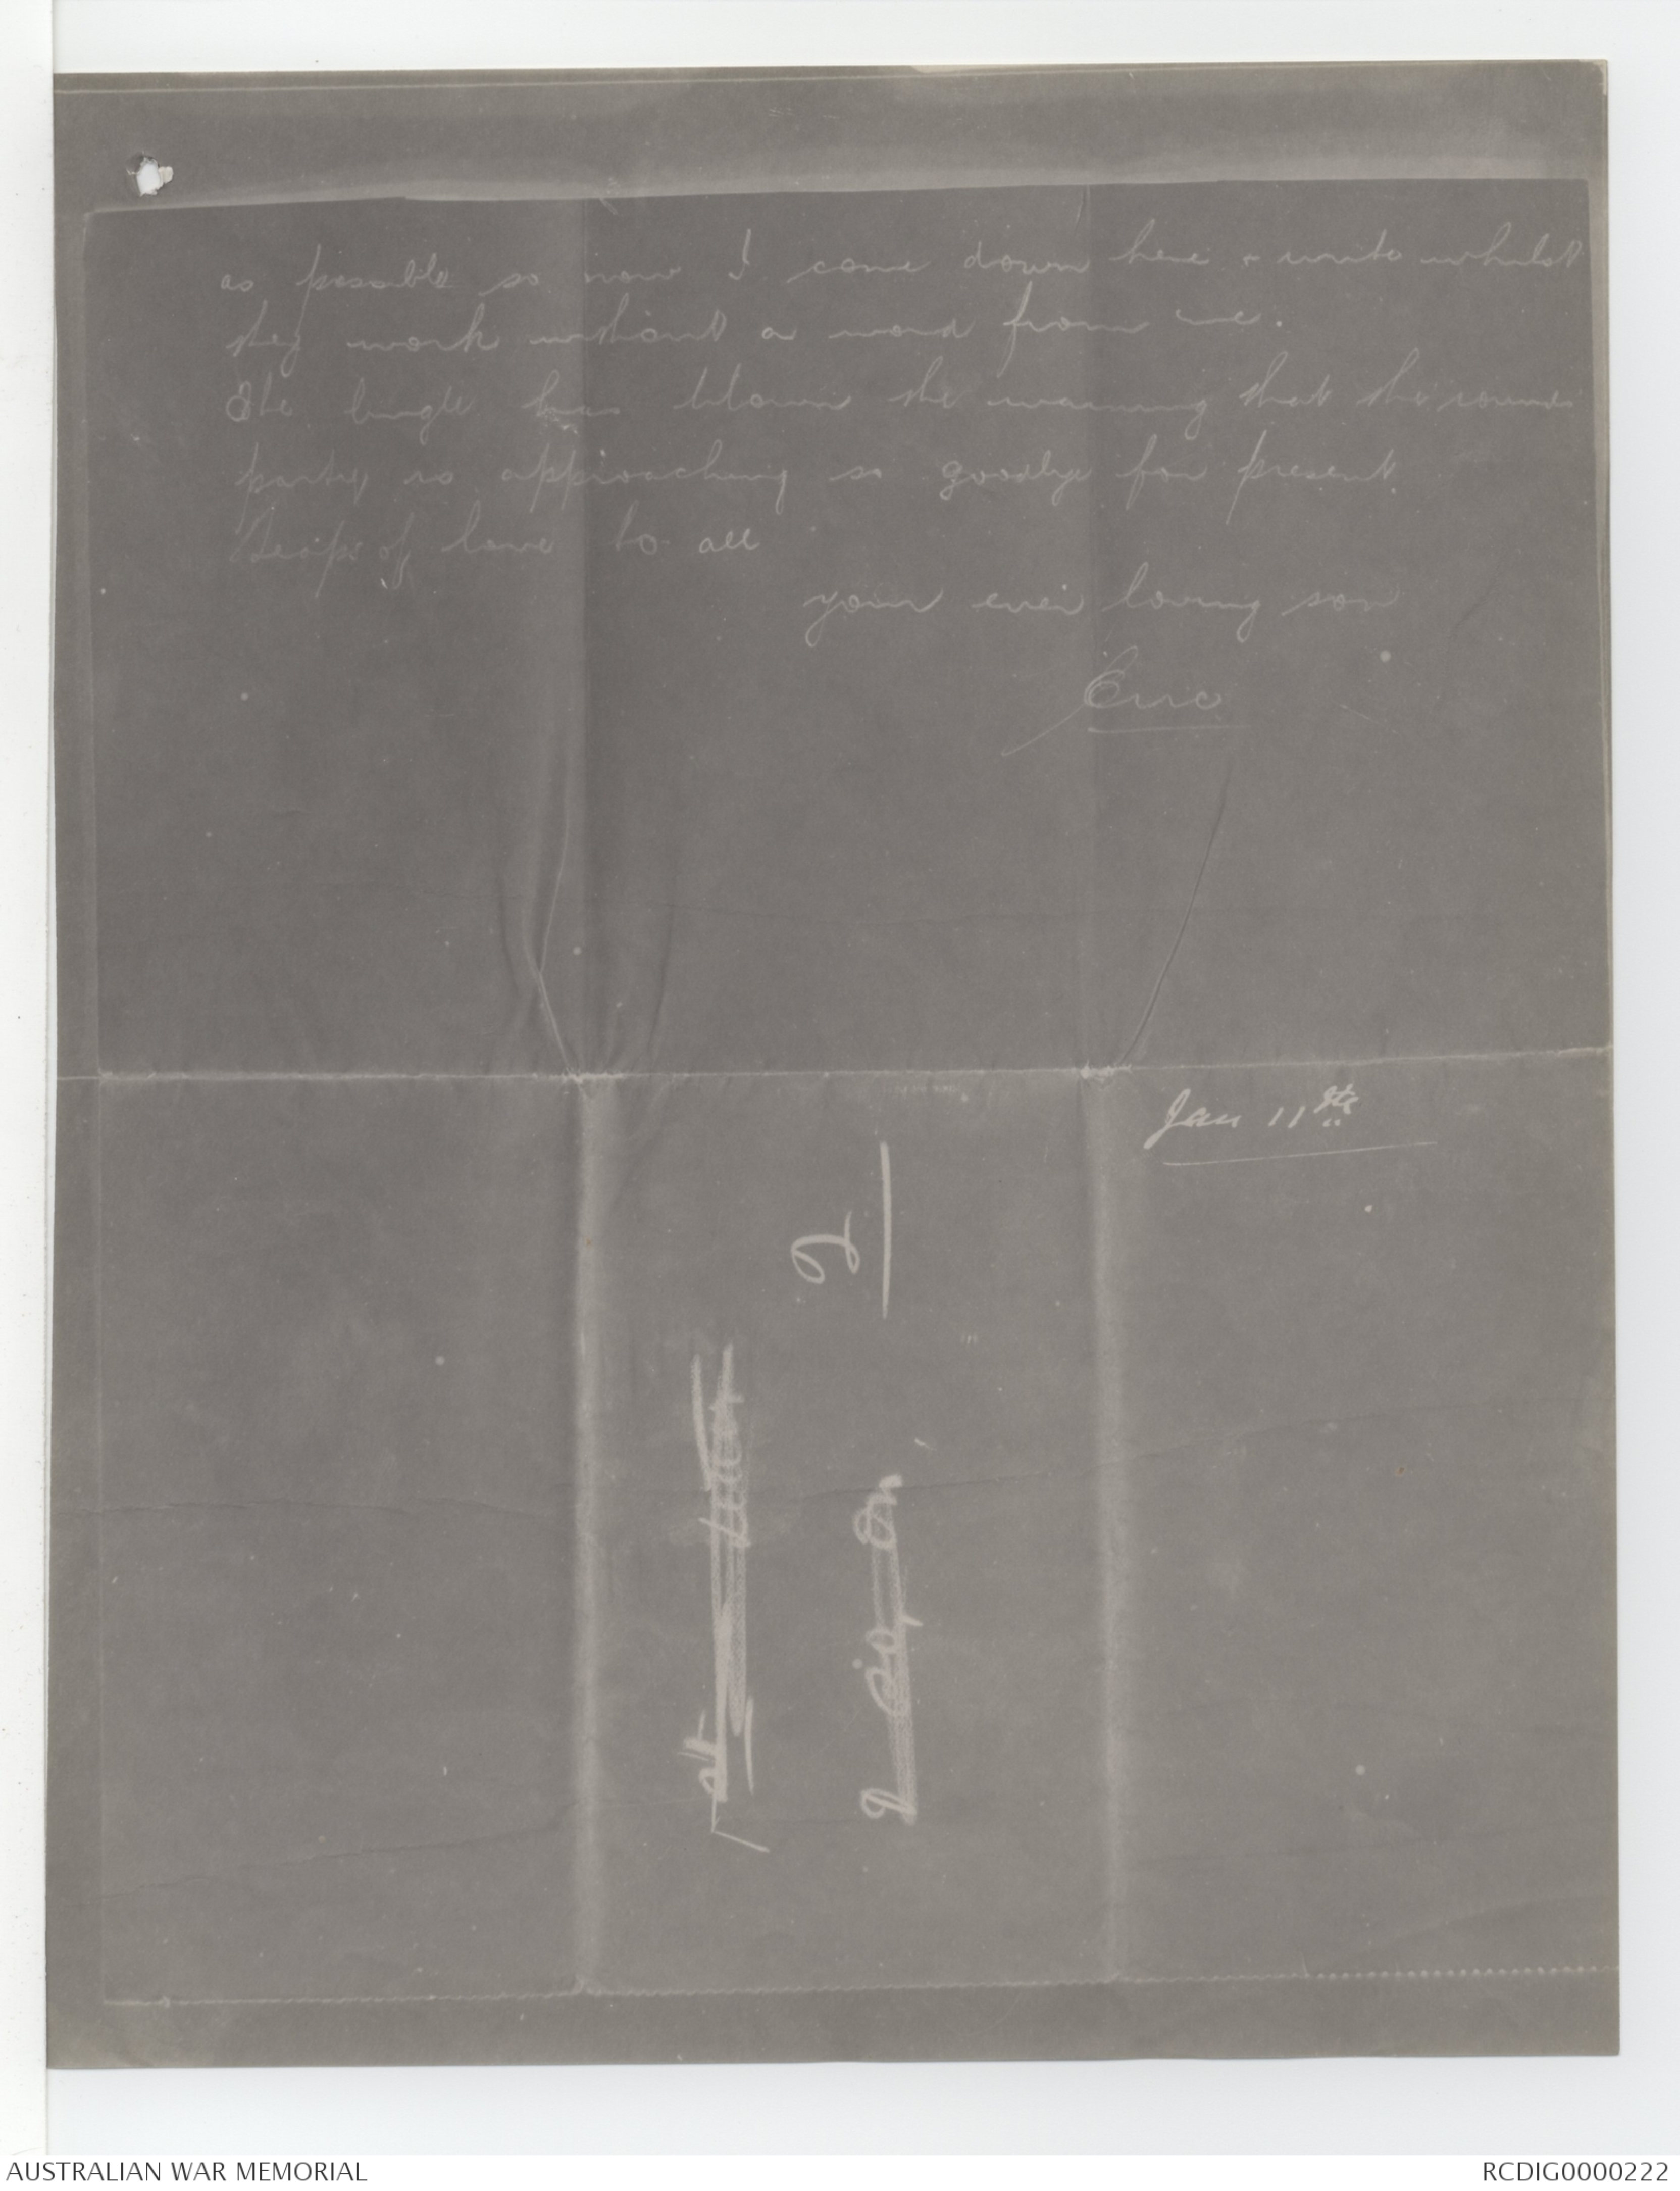 as possible so now I come down here & write whilst
they work without a word from me.
The bugle has blown the warning that the rounds
party is approaching so goodbye for present.
Heaps of love to all
your ever loving son
Eric
Jan 11th
2
AUSTRALIAN WAR MEMORIAL
RCDIG0000222